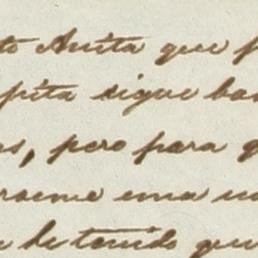 to Anita que
pita sigue ba
as, pero para
raeme una
he tenido que